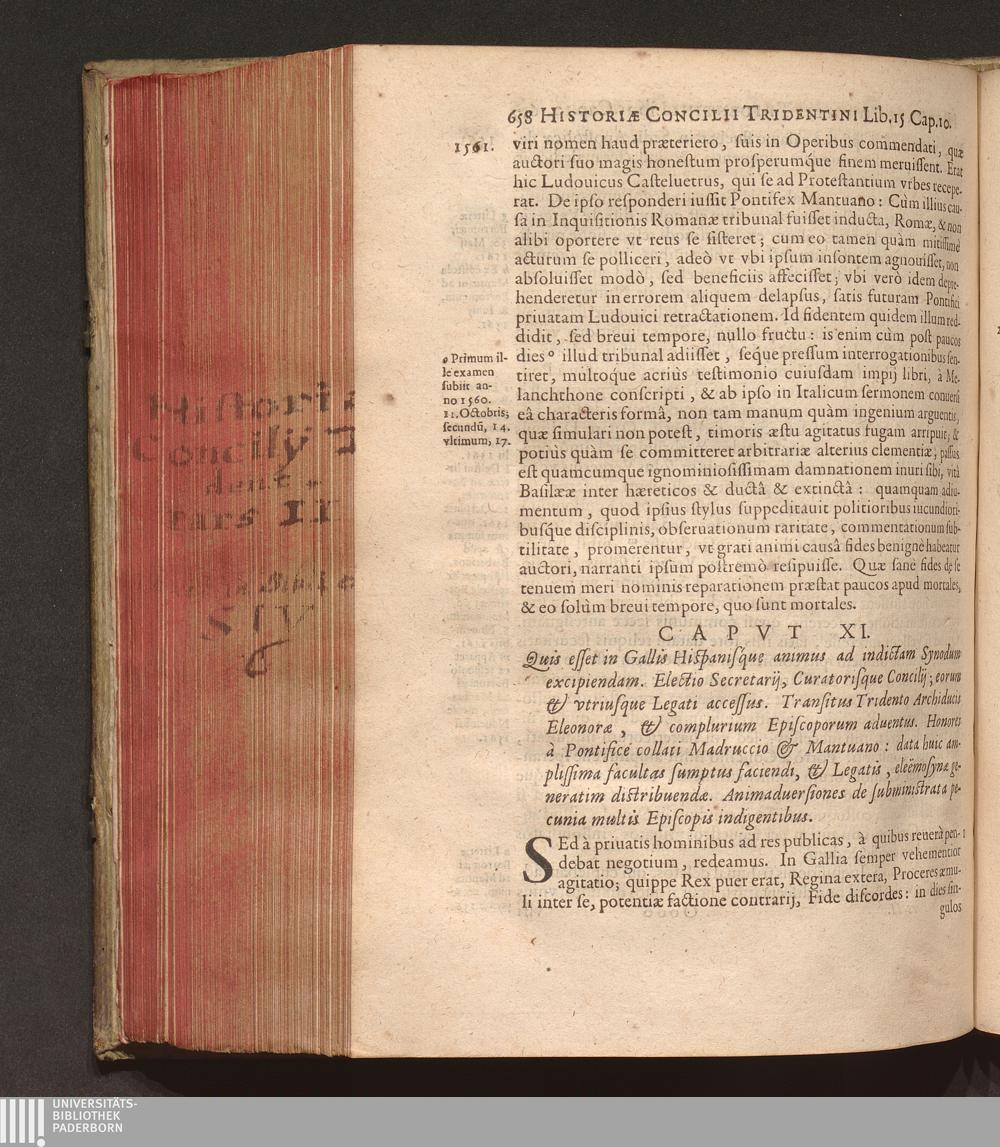 658 HISTORIÆ CONCILII TRIDENTINI Lib.15 Cap.10.
1561.
viri nomen haud præteriero, ſuis in Operibus commendati, quæ
auctori ſuo magis honeſtum proſperumq́ue finem meruiſſent. Erat
hic Ludouicus Caſteluetrus, qui ſe ad Proteſtantium vrbes recepe-
rat. De ipſo reſponderi iuſſit Pontifex Mantuano: Cùm illius cau-
ſa in Inquiſitionis Romanæ tribunal fuiſſet inducta, Romæ, & non
alibi oportere vt reus ſe ſiſteret; cum eo tamen quàm mitiſſimè
acturum ſe polliceri, adeò vt vbi ipſum inſontem agnouiſſet, non
abſoluiſſet modò, ſed beneficiis affeciſſet; vbi verò idem depre-
henderetur in errorem aliquem delapſus, ſatis futuram Pontifici
priuatam Ludouici retractationem. Id fidentem quidem illum red-
didit, ſed breui tempore, nullo fructu: is enim cùm poſt paucos
dies o illud tribunal adiiſſet, ſeq́ue preſſum interrogationibus ſen-
tiret, multoque acriùs teſtimonio cuiuſdam impij libri, à Me-
lanchthone conſcripti, & ab ipſo in Italicum ſermonem conuerſi
eâ characteris formâ, non tam manum quàm ingenium arguentis,
quæ ſimulari non poteſt, timoris æſtu agitatus fugam arripuit; &
potiùs quàm ſe committeret arbitrariæ alterius clementiæ, paſſus
eſt quamcumque ignominioſiſſimam damnationem inuri ſibi, vitâ
Baſilææ inter hæreticos & ductâ & extinctâ: quamquam adiu-
mentum, quod ipſius ſtylus ſuppeditauit politioribus iucundiori-
buſq́ue diſciplinis, obſeruationum raritate, commentationum ſub-
tilitate, promerentur, vt grati animi causâ fides benignè habeatur
auctori, narranti ipſum poſtremò reſipuiſſe. Quæ ſanè fides de ſe
tenuem meri nominis reparationem præſtat paucos apud mortales,
& eo ſolùm breui tempore, quo ſunt mortales.
o Primum il-
le examen
ſubiit an-
no 1560.
11. Octobris;
ſecundũ, 14.
vltimum, 17.
CAPVT XI.
Quis eſſet in Gallis Hiſpaniſq́ue animus ad indictam Synodum
excipiendam. Electio Secretarij, Curatoriſque Concilij; eorum
& vtriuſque Legati acceſſus. Tranſitus Tridento Archiducis
Eleonoræ, & complurium Epiſcoporum aduentus. Honores
à Pontifice collati Madruccio & Mantuano: data huic am-
pliſſima facultas ſumptus faciendi, & Legatis, eleëmoſynæ ge-
neratim diſtribuendæ. Animaduerſiones de ſubminiſtrata pe-
cunia multis Epiſcopis indigentibus.
SEd à priuatis hominibus ad res publicas, à quibus reuerà pen- 1
debat negotium, redeamus. In Gallia ſemper vehementior
agitatio; quippe Rex puer erat, Regina extera, Proceres æmu-
li inter ſe, potentiæ factione contrarij, Fide diſcordes: in dies ſin-
gulos
Hiſtoria
Concilij T
dent.
Pars II
SIV
6
UNIVERSITÄTS-
BIBLIOTHEK
PADERBORN